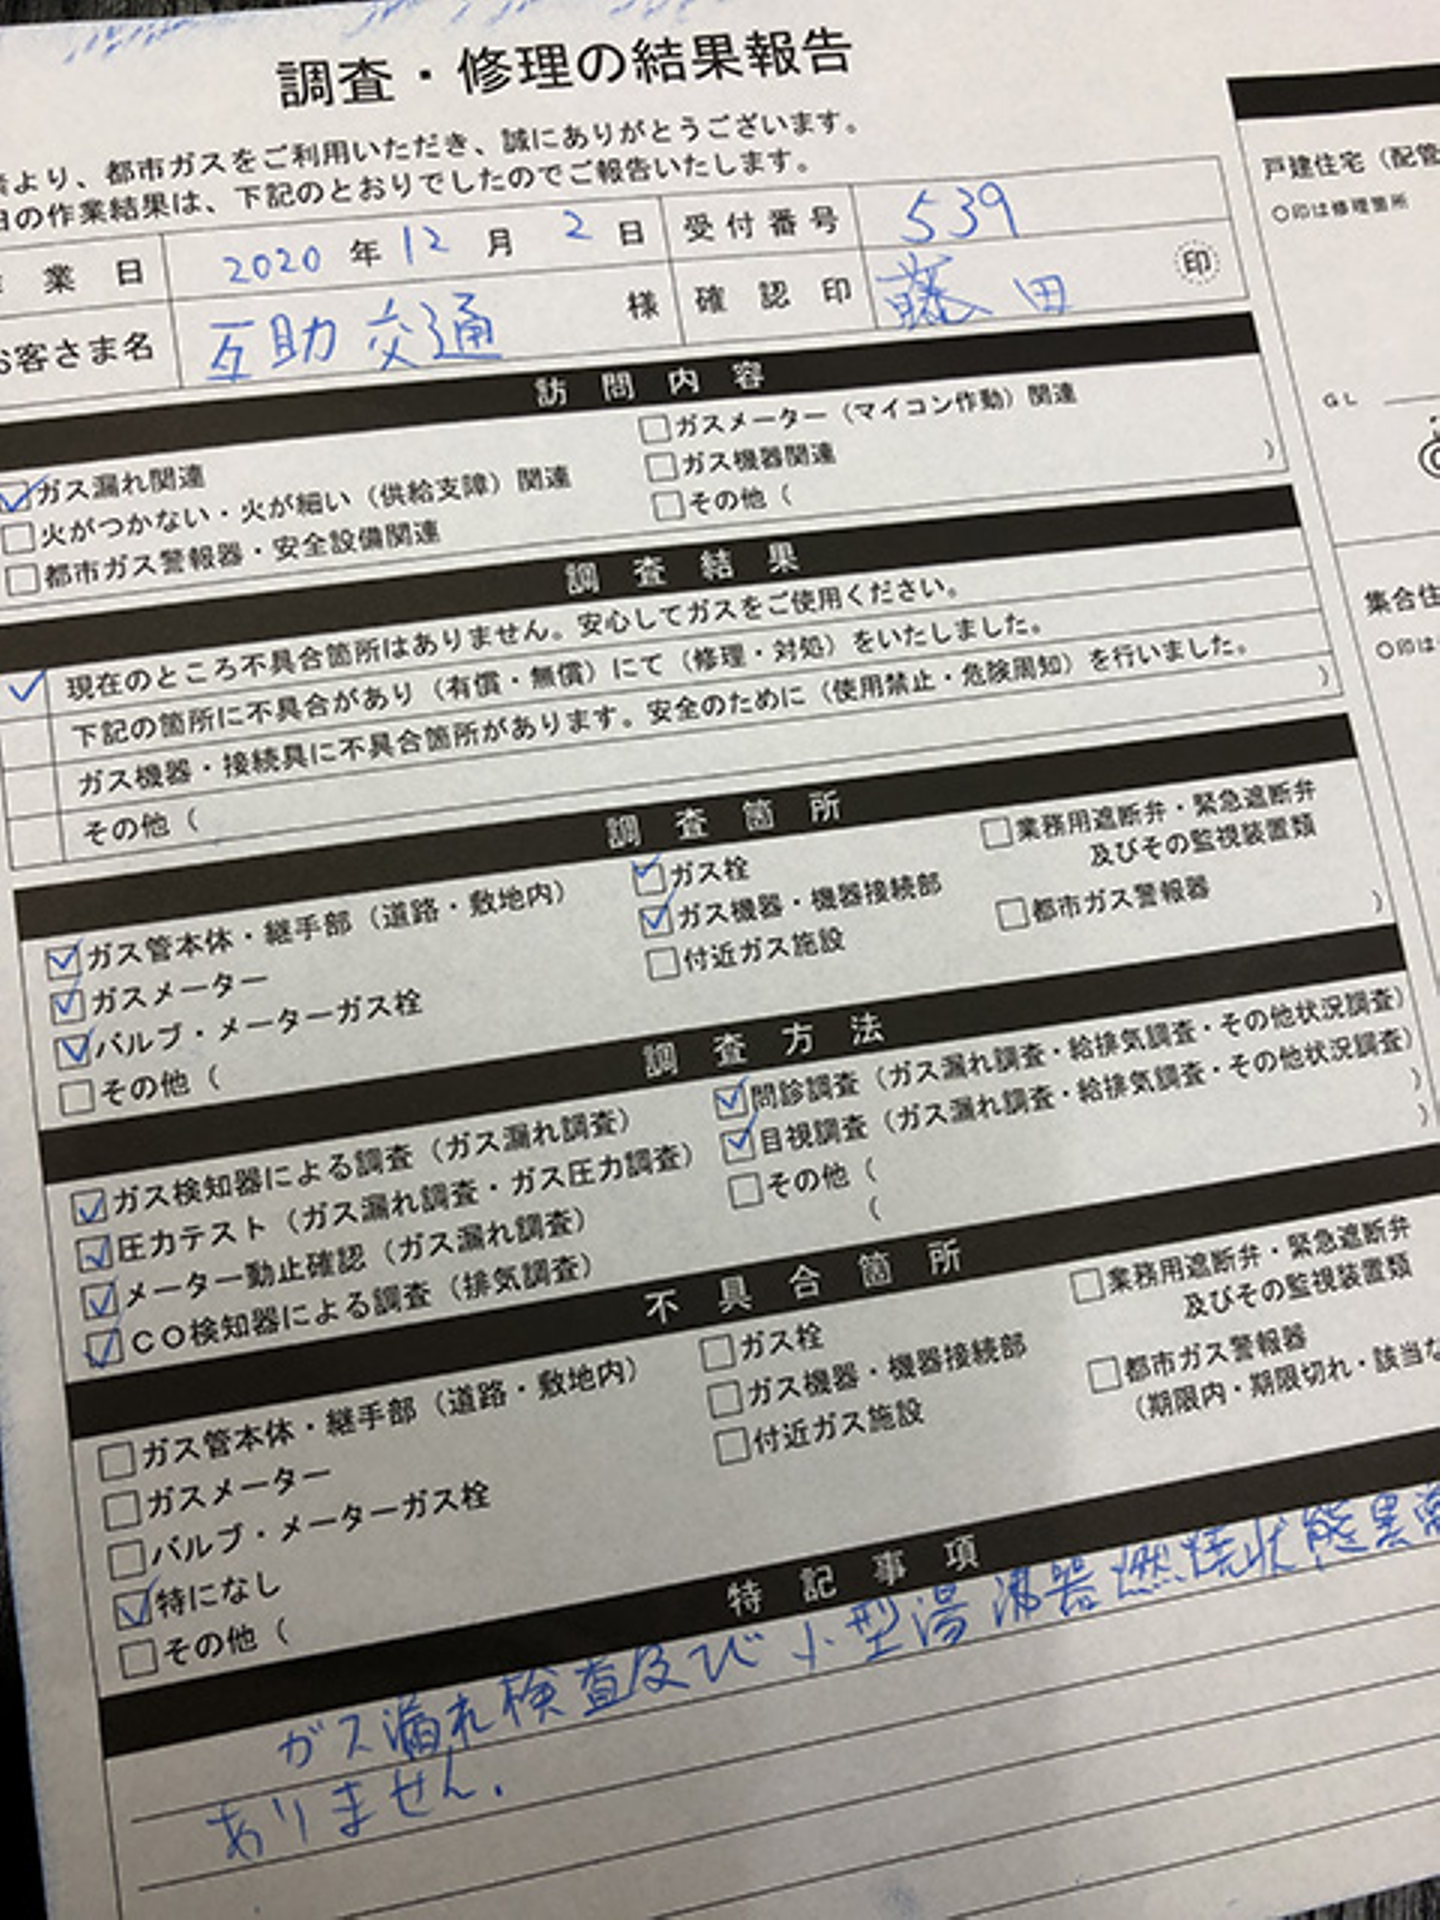 調査・修理の結果報告
より、都市ガスをご利用いただき、誠にありがとうございます。
の作業結果は、下記のとおりでしたのでご報告いたします。
業日 2020年12月2日 受付番号 539
お客さま名 互助交通 様 確認印 藤田 印
訪問内容
☑ガス漏れ関連 □ガスメーター（マイコン作動）関連
□火がつかない・火が細い（供給支障）関連 □ガス機器関連
□都市ガス警報器・安全設備関連 □その他（ ）
調査結果
✓ 現在のところ不具合箇所はありません。安心してガスをご使用ください。
下記の箇所に不具合があり（有償・無償）にて（修理・対処）をいたしました。
ガス機器・接続具に不具合箇所があります。安全のために（使用禁止・危険周知）を行いました。
その他（ ）
調査箇所
☑ガス管本体・継手部（道路・敷地内） ☑ガス栓 □業務用遮断弁・緊急遮断弁
及びその監視装置類
☑ガスメーター ☑ガス機器・機器接続部
☑バルブ・メーターガス栓 □付近ガス施設 □都市ガス警報器
□その他（ ）
調査方法
☑ガス検知器による調査（ガス漏れ調査） ☑問診調査（ガス漏れ調査・給排気調査・その他状況調査）
☑圧力テスト（ガス漏れ調査・ガス圧力調査） ☑目視調査（ガス漏れ調査・給排気調査・その他状況調査）
☑メーター動止確認（ガス漏れ調査） □その他（ ）
☑CO検知器による調査（排気調査） （ ）
不具合箇所
□ガス管本体・継手部（道路・敷地内） □ガス栓 □業務用遮断弁・緊急遮断弁
及びその監視装置類
□ガスメーター □ガス機器・機器接続部
□バルブ・メーターガス栓 □付近ガス施設 □都市ガス警報器
（期限内・期限切れ・該当な
☑特になし
□その他（
特記事項
ガス漏れ検査及び小型湯沸器燃焼状態異常
ありません.
戸建住宅（配管
○印は修理箇所
GL
集合住
○印は